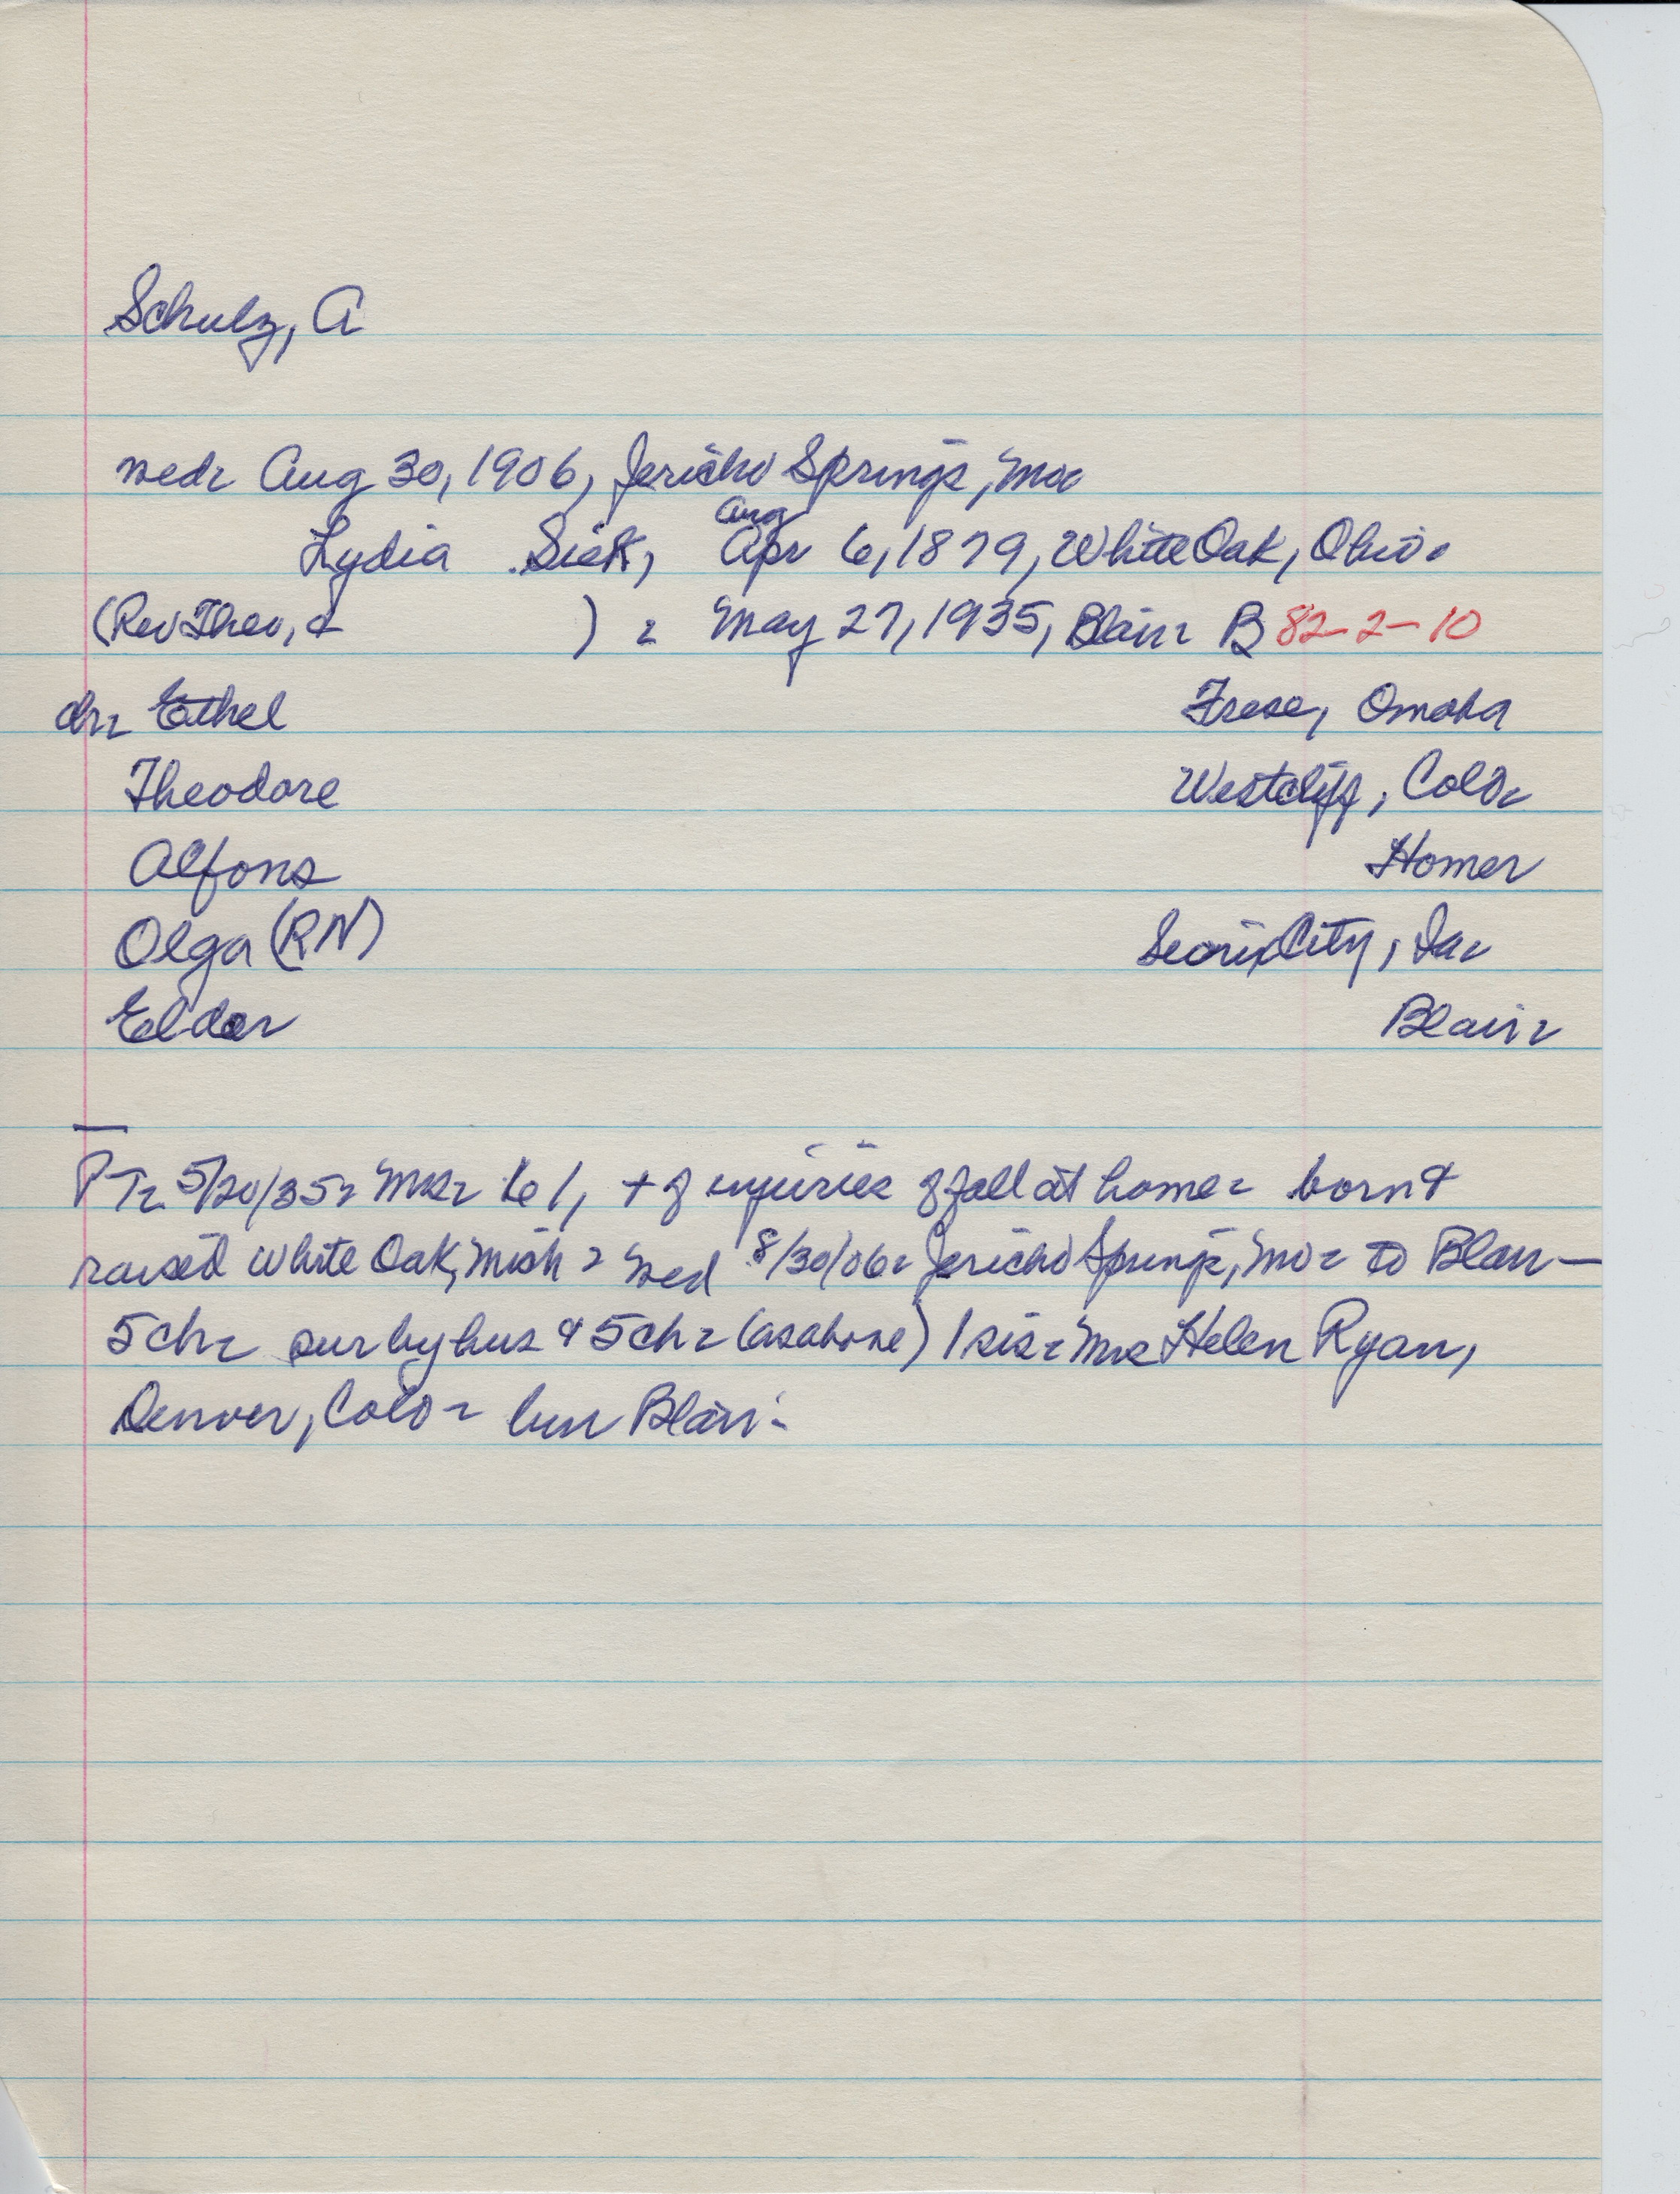 Schulz, A
wed- Aug 30, 1906, Jericho Springs, Mo-
Aug
Lydia Sick, Apr 6, 1879, White Oak, Ohio-
(Rev Theo, & ) - May 27, 1935, Blair- B 82-2-10
ch- Ethel Frese, Omaha
Theodore Westcliff, Colo-
Alfons Homer
Olga (RN) Sioux City, Ia-
Eldor Blair-
PT- 5/20/35- Mrs- 61, + of injuries of fall at home- born &
raised White Oak, Mich- wed 8/30/06- Jericho Springs, Mo- to Blair-
5 ch- sur by hus & 5 ch- (as above) 1 sis- Mrs Helen Ryan,
Denver, Colo- bur Blair-